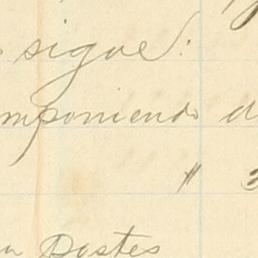 sigue:
mponiendo d
" 3
n postes